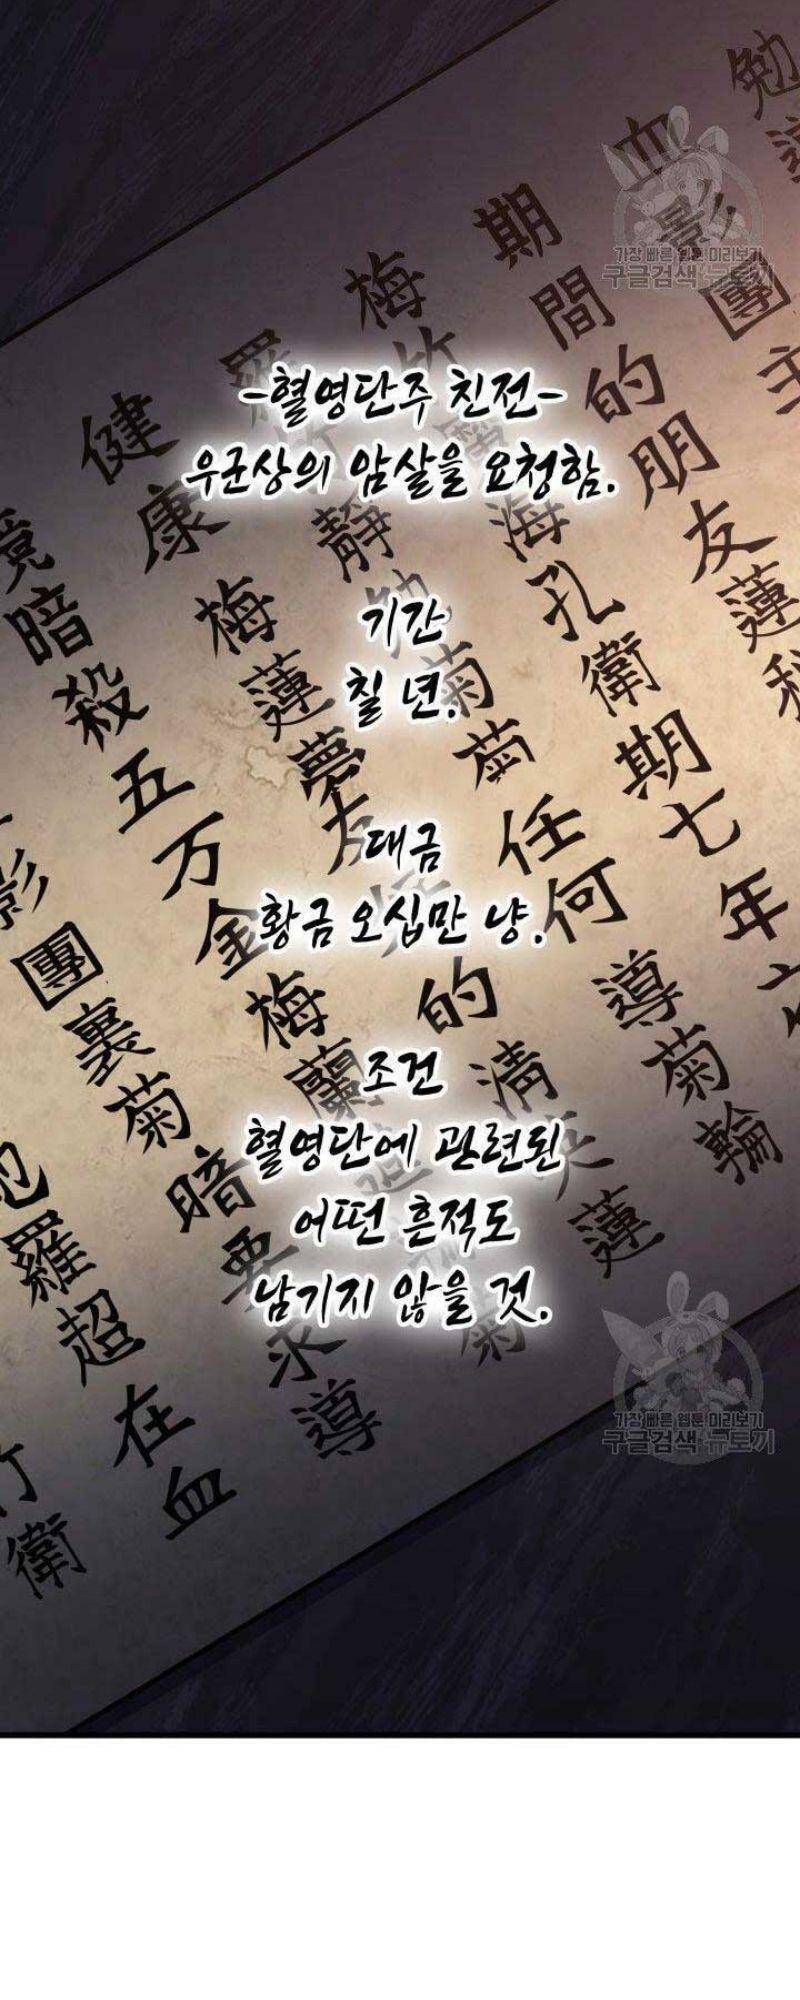 -혈영단주 친전-
우군상의 암살을 요청함.
기간
칠 년.
대금
황금 오십만 냥.
조건
혈영단에 관련된
어떤 흔적도
남기지 않을 것.
勉
血影團主
期間的朋友蓮
梅竹
海孔衛期七年
健康梅蓮夢
靜勉菊菊任何導菊輪
暗殺五万金梅蘭
的清英蓮
影團裏菊暗要求導
羅超在血
竹衛
가장 빠른 웹툰 미리보기
구글검색 뉴토끼
가장 빠른 웹툰 미리보기
구글검색 뉴토끼